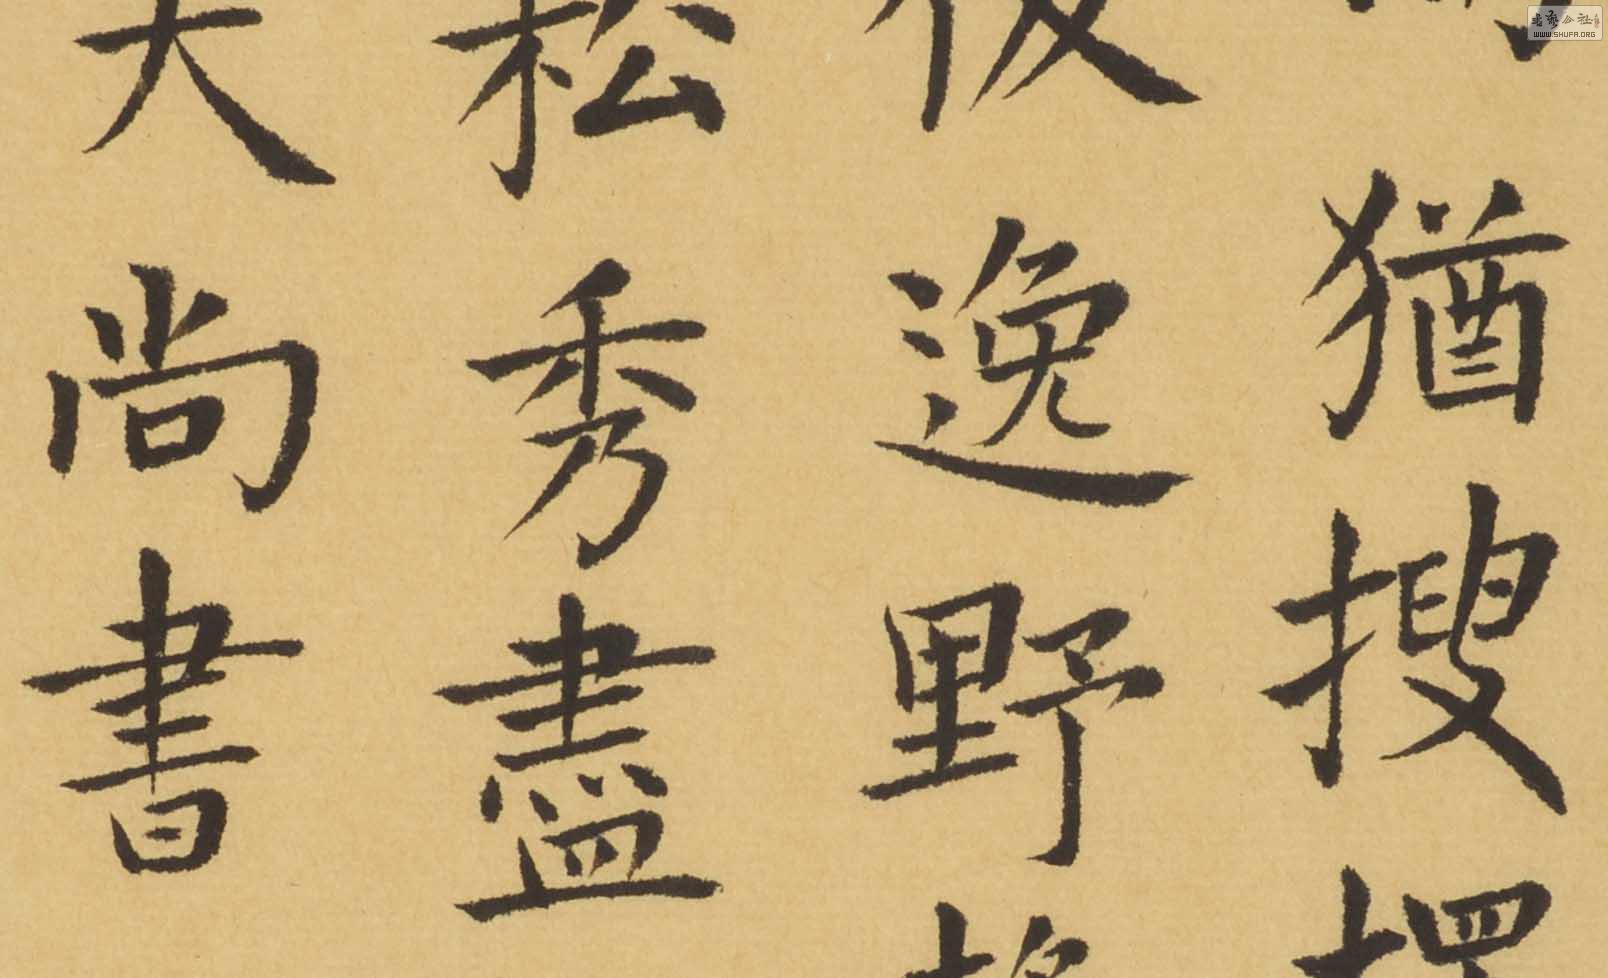 猶搜
逸野
松秀盡
大尚書
WWW.SHUFA.ORG